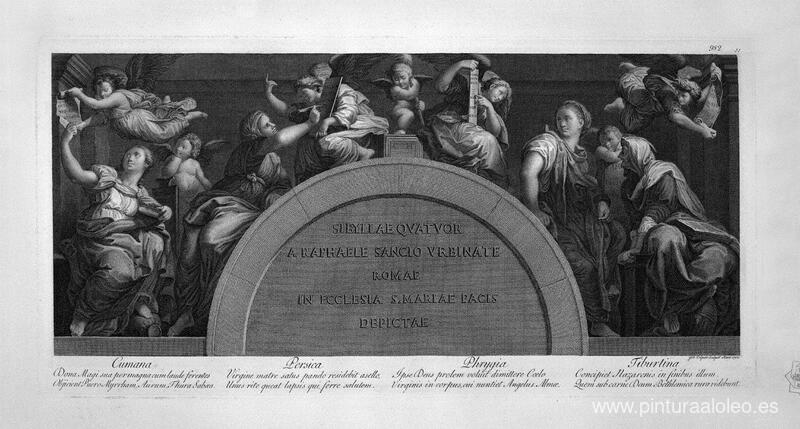 982
21
SIBYLLAE QVATVOR
A RAPHAELE SANCIO VRBINATE
ROMAE
IN ECCLESIA S. MARIAE PACIS
DEPICTAE
Cumana
Persica
Phrygia
Tiburtina
Dona Magi sua permagna cum laude ferentes
Objicient Puero Myrrham, Aurum, Thura Sabea.
Virgine matre satus pando residebit asello,
Unus rite queat lapsis qui ferre salutem.
Ipse Deus prolem voluit dimittere Coelo
Virginis in corpus, cui nuntiet Angelus Almae.
Concipiet Nazarenis in finibus illum,
Quem sub carne Deum Bethlemica rura videbunt.
www.pinturaaloleo.es